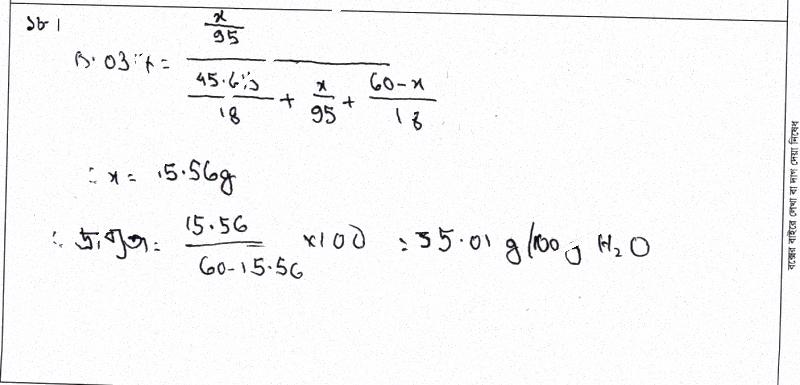 ১৮।
x/95
= ―――
45.6 / 18 + x/95 + 60-x / 18
∴ x = 15.56g
∴ দ্রাব্যতা = 15.56 / 60-15.56 ×100 = 35.01 g/100g H₂O
বক্সের বাইরে লেখা বা দাগ দেয়া নিষেধ